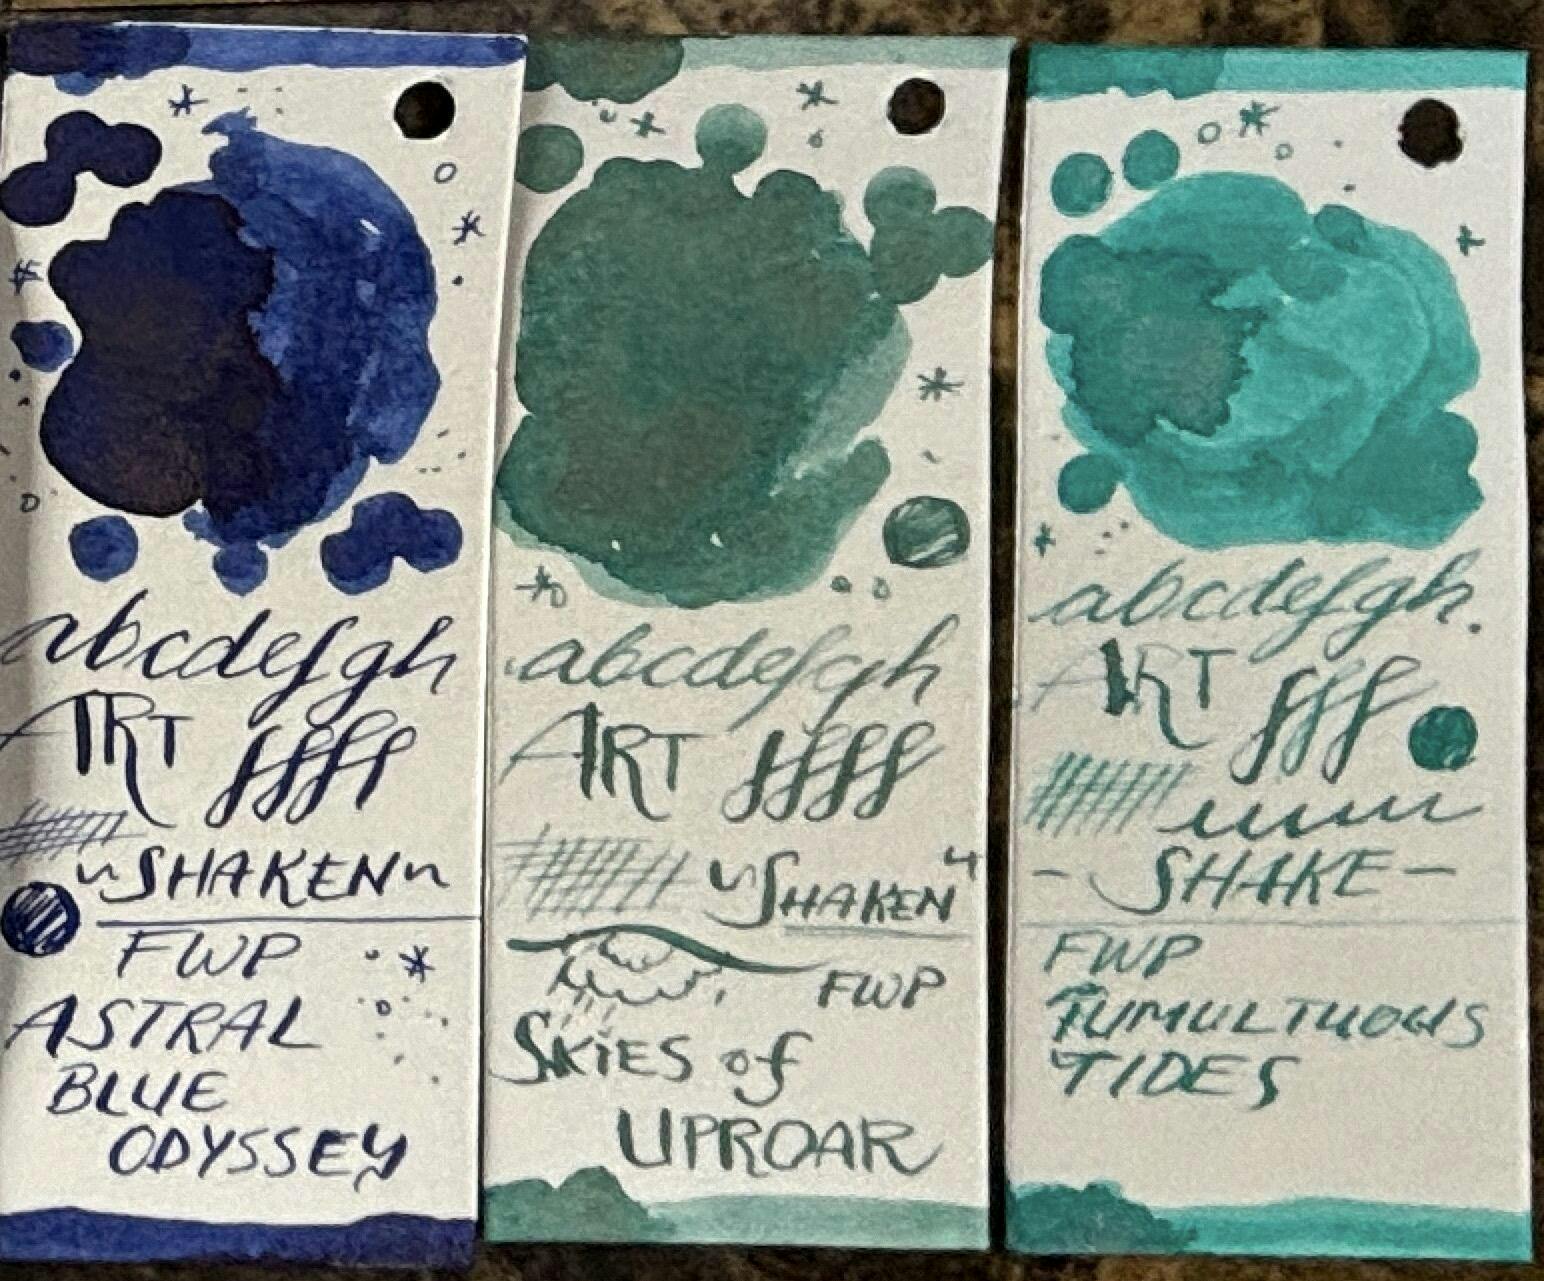 abcdefgh
ART ffff
~SHAKEN~
FWP
ASTRAL
BLUE
ODYSSEY
abcdefgh
ART ffff
"SHAKEN"
FWP
SKIES of
UPROAR
abcdefgh.
ART fff
- SHAKE -
FWP
TUMULTUOUS
TIDES